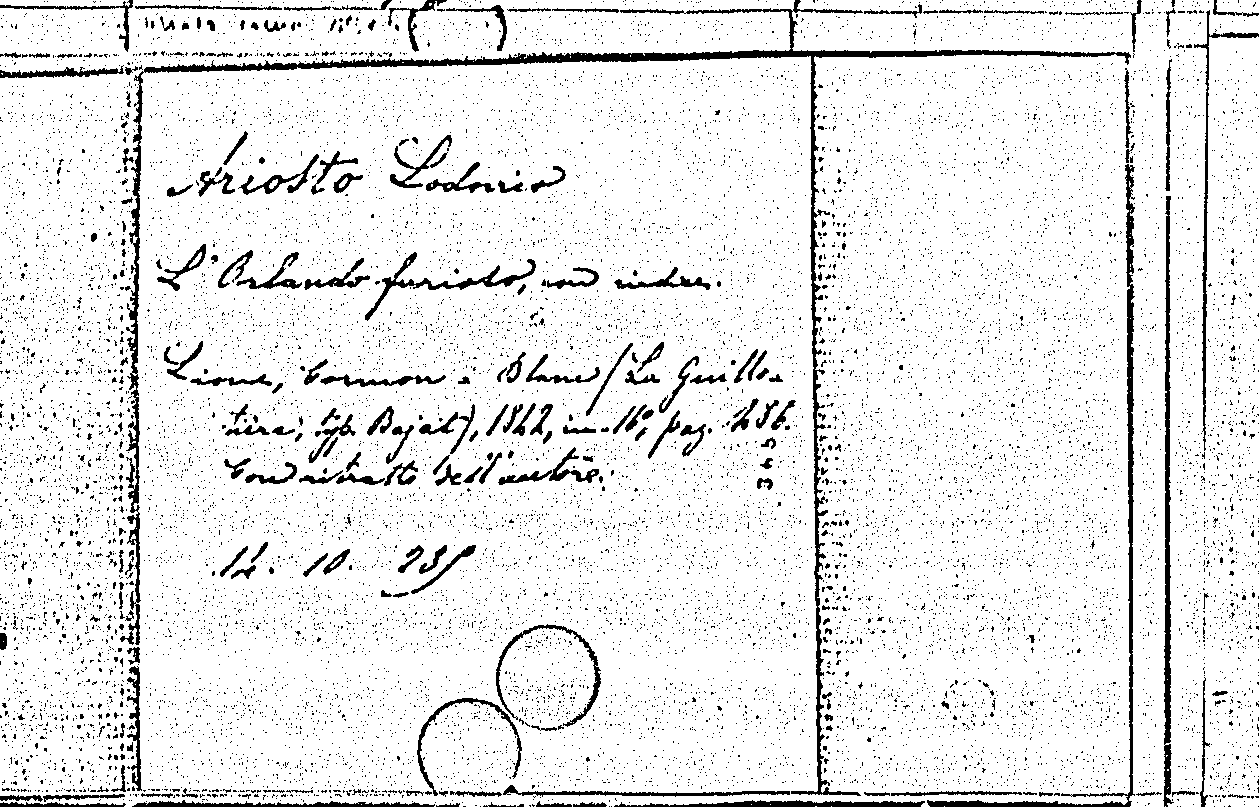 Ariosto Lodovico
L'Orlando furioso, con indice.
Lione, Cormon e Blanc (La Guillo-
tière, typ. Bajat), 1842, in-16°, pag. 
Con ritratto dell'autore.
14. 10.